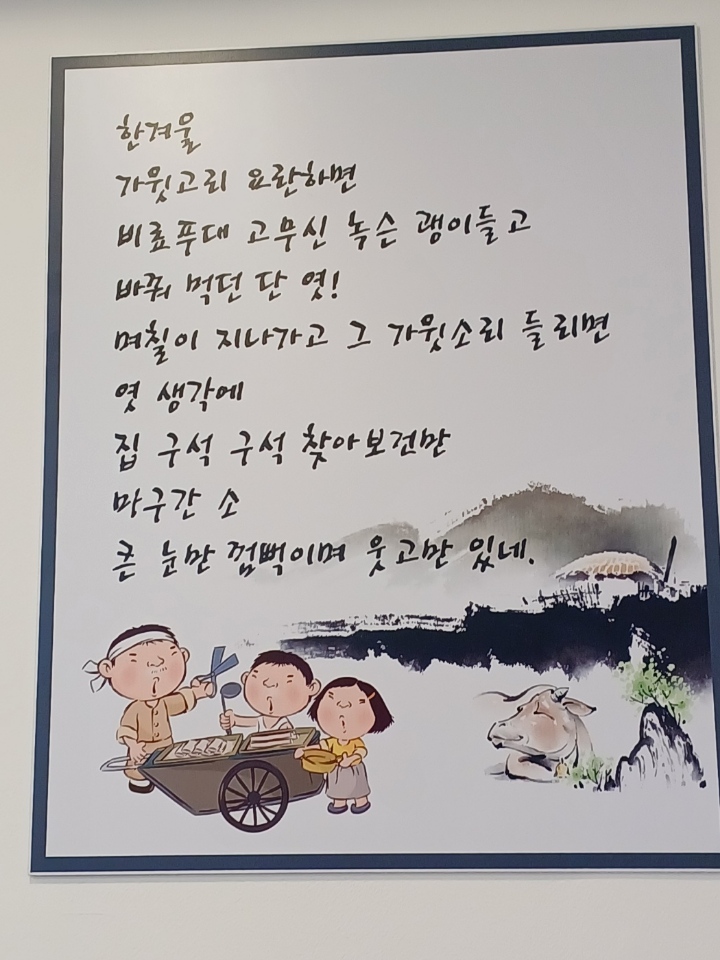 한겨울
가윗고리 요란하면
비료푸대 고무신 녹슨 괭이들고
바꿔 먹던 단 엿!
며칠이 지나가고 그 가윗소리 들리면
엿 생각에
집 구석 구석 찾아보건만
마구간 소
큰 눈만 껌뻑이며 웃고만 있네.